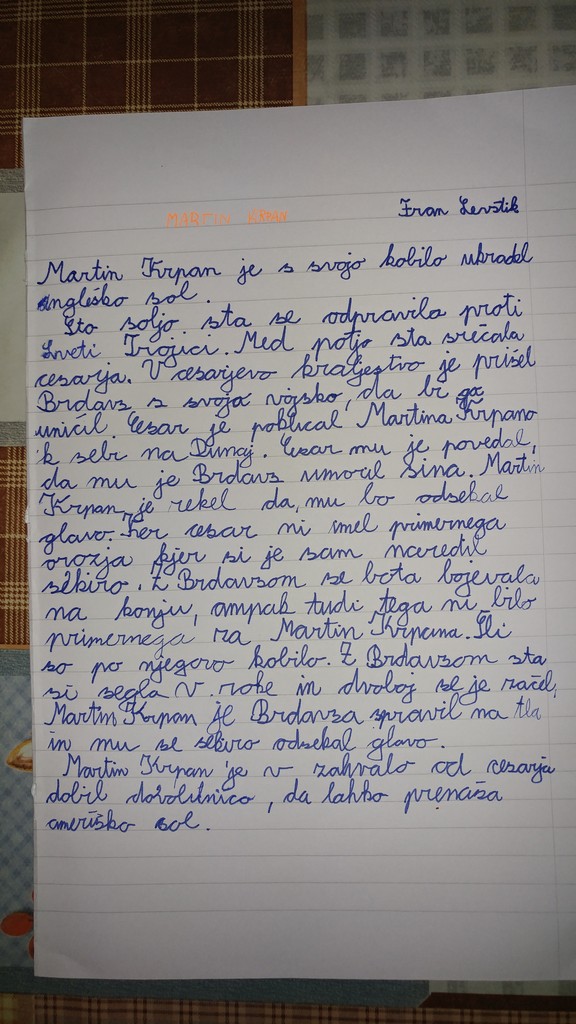 MARTIN KRPAN
Fran Levstik
Martin Krpan je s svojo kobilo ukradel
angleško sol.
S to soljo sta se odpravila proti
Sveti Trojici. Med potjo sta srečala
cesarja. V cesarjevo kraljestvo je prišel
Brdavs s svojo vojsko, da bi ga
uničil. Cesar je poklical Martina Krpano
k sebi na Dunaj. Cesar mu je povedal,
da mu je Brdavs umoril sina. Martin
Krpan je rekel da, mu bo odsekal
glavo. Ker cesar ni imel primernega
orozja kjer si je sam naredil
sekiro. Z Brdavsom se bota bojevala
na konju, ampak tudi tega ni bilo
primernega za Martin Krpana. Šli
so po njegovo kobilo. Z Brdavsom sta
si segla v roke in dvoboj se je začel,
Martin Krpan je Brdavsa spravil na tla
in mu se sekiro odsekal glavo.
Martin Krpan je v zahvalo od cesarja
dobil dovolilnico, da lahko prenaša
ameriško sol.